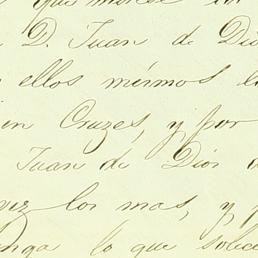 que
D. Juan de Dios
ellos mismos l
en Cruzes, y por
Juan de Dios d
vez los mas, y p
nga lo que solic